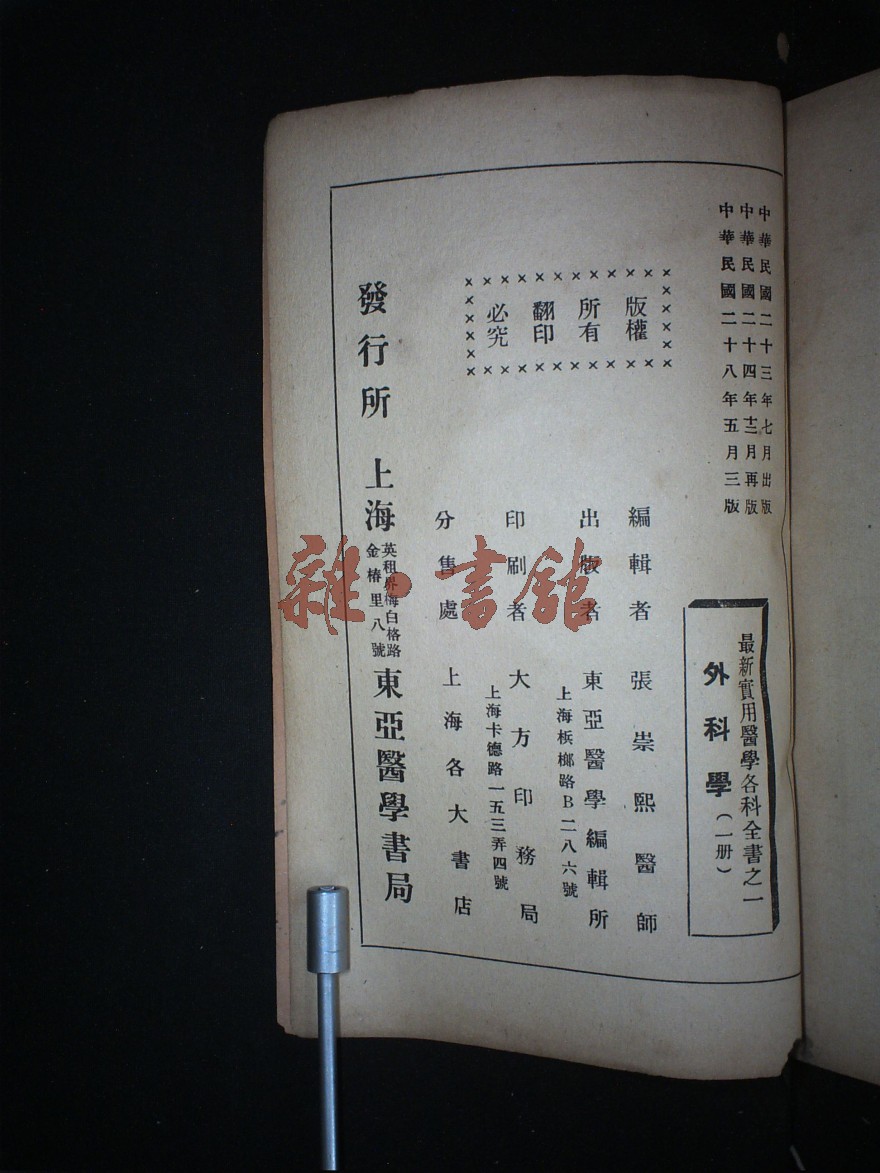 中華民國二十三年七月出版
中華民國二十四年十二月再版
中華民國二十八年五月三版
最新實用醫學各科全書之一
外科學(一册)
版權
所有
翻印
必究
編輯者 張崇熙醫師
出版者 東亞醫學編輯所
上海梹榔路B二八六號
印刷者 大方印務局
上海卡德路一五三弄四號
分售處 上海各大書店
發行所 上海 英租界梅白格路
金椿里八號
東亞醫學書局
雜·書館